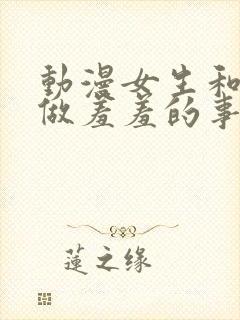 動漫女生和
做羞羞的事
蓮之缘